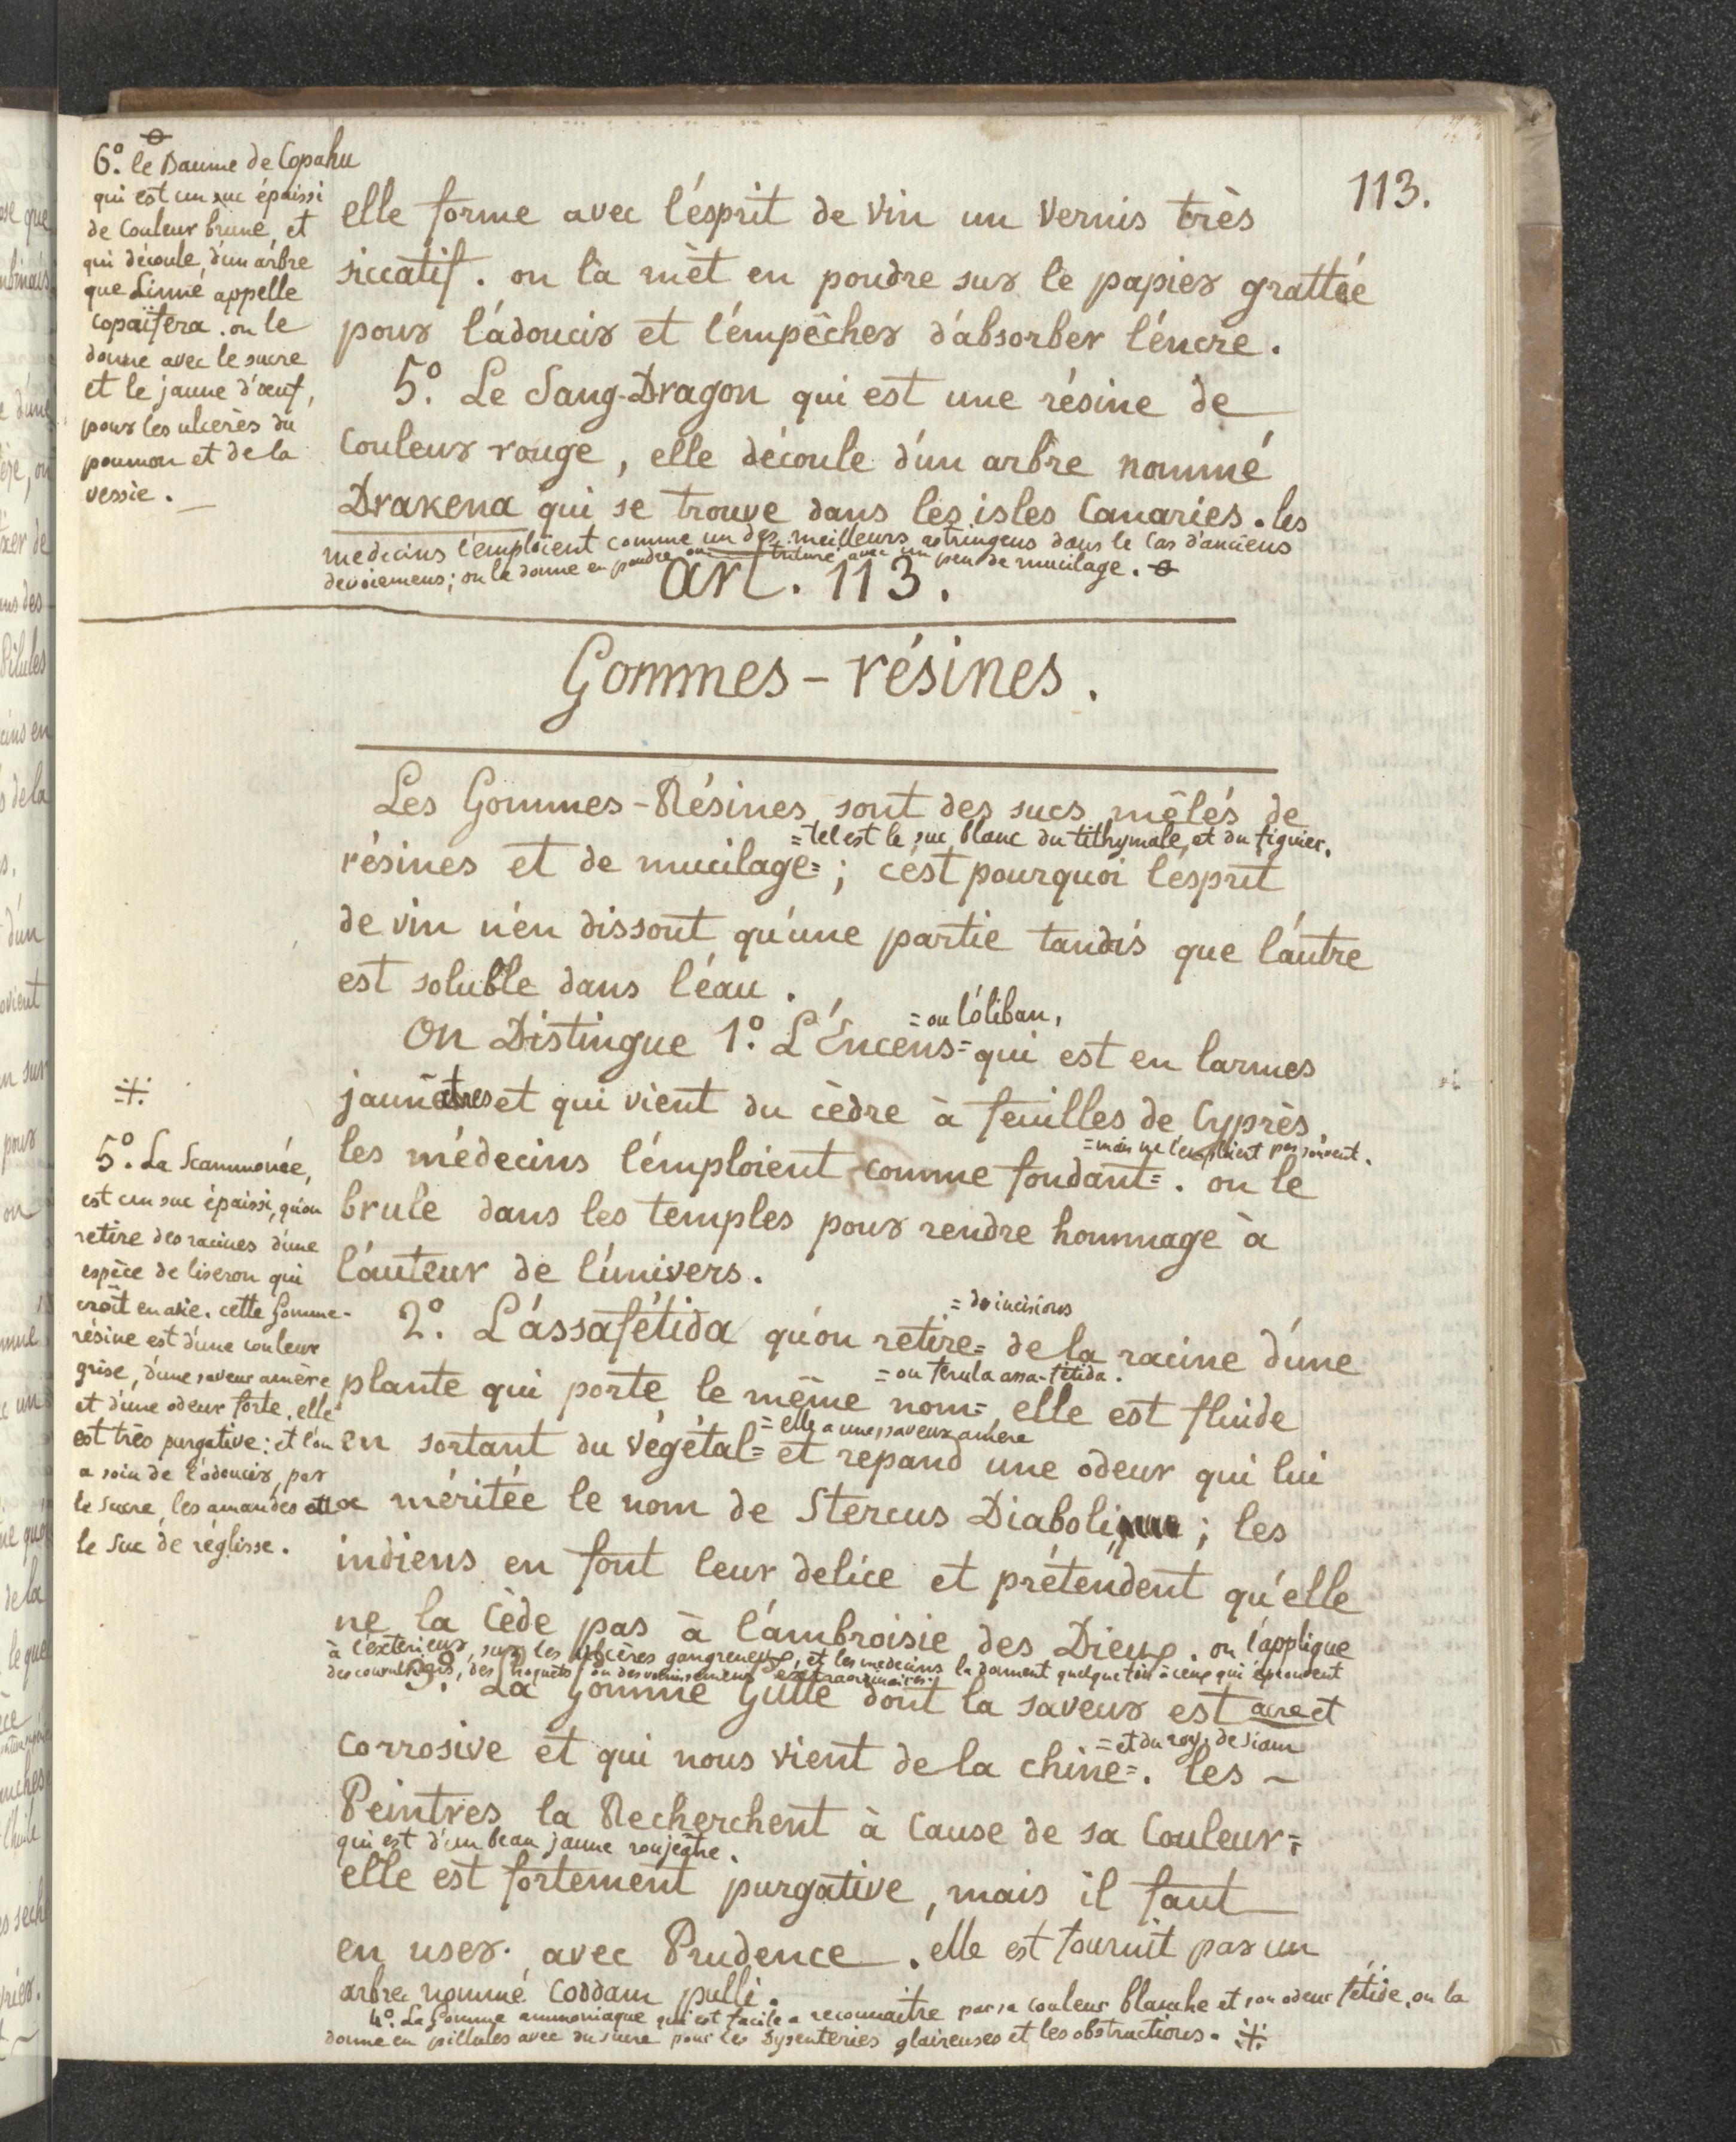 113.
6.° le Baume de Copahu
qui est un suc épaissi
de couleur brune, et
qui découle, d'un arbre
que Linné appelle
copaïfera. on le
donne avec le sucre
et le jaune d'œuf,
pour les ulcerès du
poumon et de la
vessie.
elle forme avec l'ésprit de vin un vernis très
siccatif. on la mèt en poudre sur le papier grattée
pour l'adoucir et l'émpêcher d'absorber l'éncre.
5.° Le Sang-Dragon qui est une résine de
couleur rouge, elle découle d'un arbre nommé
Drakena qui se trouve dans les isles Canaries. les
medecins l'emploient comme un des meilleurs astringens dans le cas d'anciens
devoiemens; on le donne en poudre ou trituré avec un peu de mucilage.
art. 113.
Gommes-résines.
Les Gommes-Résines sont des sucs mêlés de
= tel est le suc blanc du tithymale, et du figuier.
résines et de mucilage=; c'ést pourquoi l'esprit
de vin n'én dissout qu'une partie tandis que l'autre
est soluble dans l'éau.
= ou l'óliban,
On Distingue 1.° L'Éncens= qui est en larmes
jaunêatres et qui vient du cèdre à feuilles de Cyprès.
= mais ne l'emploient pas souvent.
les médecins l'émploient comme fondant=. on le
brule dans les temples pour rendre hommage à
l'auteur de l'univers.
= de incisions
2.° L'ássafétida qu'on retire= de la racine d'une
= ou ferula assa-fétida.
plante qui porte le même nom=, elle est fluide
= elle a une saveur amere
en sortant du végétal= et repand une odeur qui lui
a méritée le nom de Stercus Diaboli; les
indiens en font leur delice et prétendent qu'elle
ne la cède pas à l'ambroisie des Dieux. on l'applique
à l'éxterieur, sur les ulcères gangreneux, et les medecins la donnent quelque fois à ceux qui éprouvent
des convulsions, des hoquets ou des vomissemens extraordinaires.
3.° La Gomme Gutte dont la saveur est acre et
= et du roy. de siam
corrosive et qui nous vient de la chine=. les
Peintres la Recherchent à cause de sa couleur=
qui est d'un beau jaune roujeâtre.
elle est fortement purgative, mais il faut
en user avec Prudence. elle est fournit par un
arbre nommé coddam pulli.
4.° La Gomme ammoniaque qui est facile a reconnaitre par sa couleur blanche et son odeur fétide. on la
donne en pillules avec du sucre pour les Dysenteries glaireuses et les obstructions. ÷
÷
5.° La Scammonée,
est un suc épaissi, qu'on
retire des racines d'une
espèce de liseron qui
croît en asie. cette Gomme-
résine est d'une couleur
grise, d'une saveur amère
et d'une odeur forte. elle
est très purgative: et l'on
a soin de l'adoucir, par
le sucre, les amandes et
le suc de réglisse.